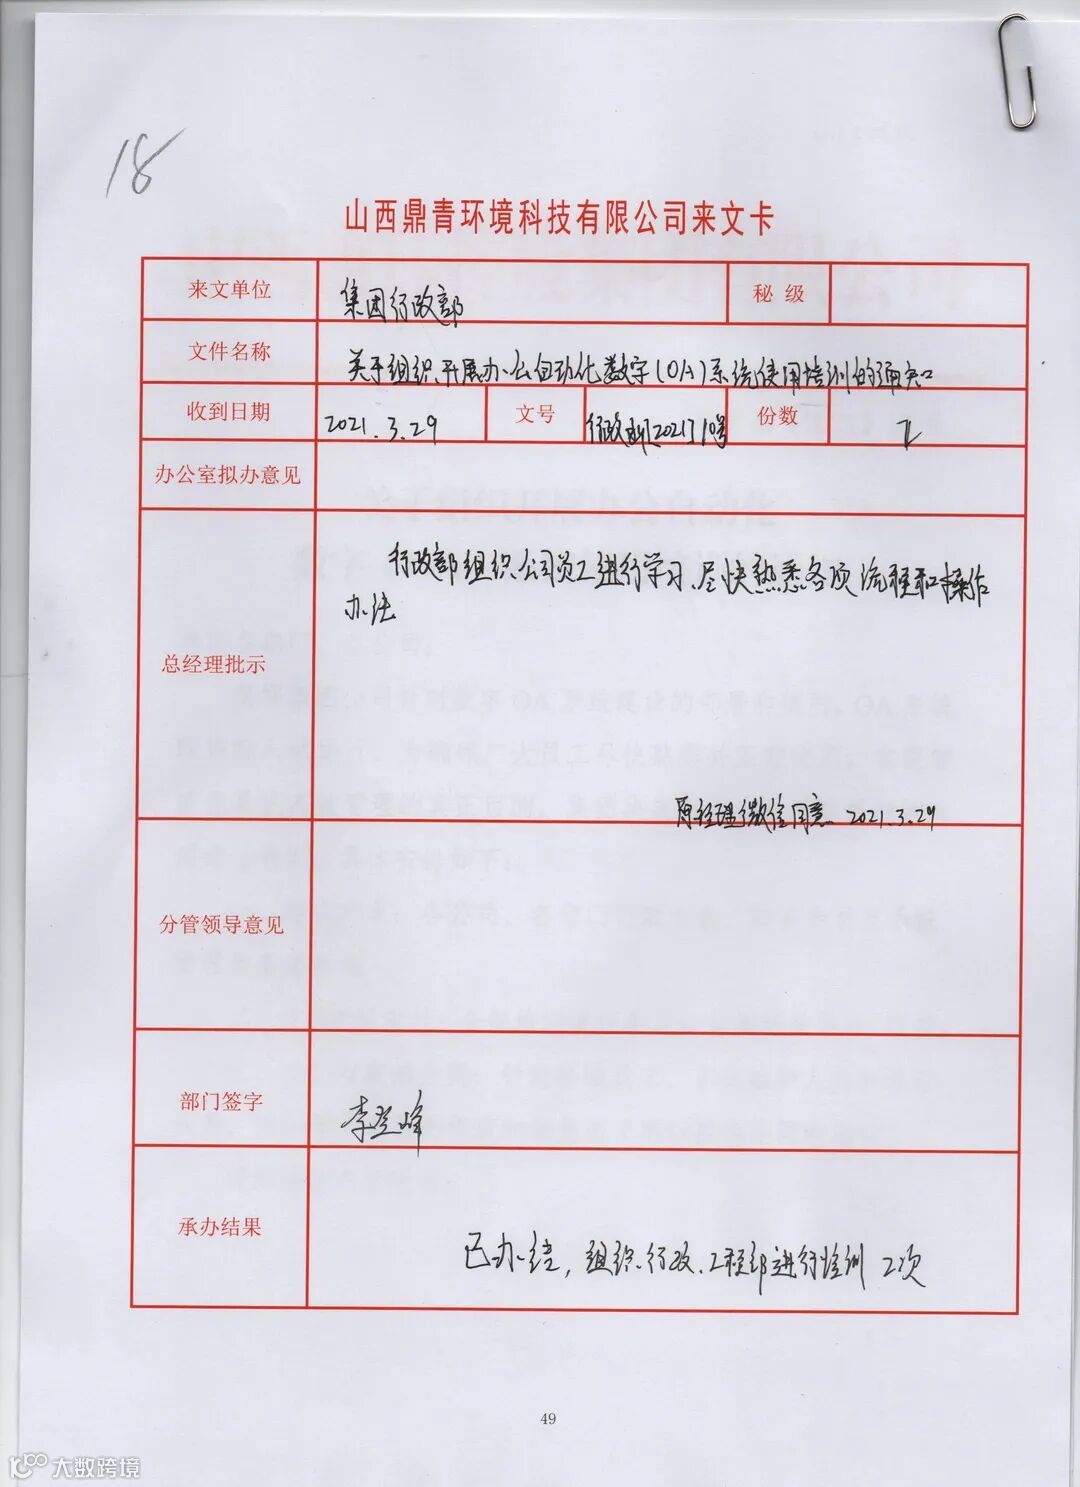 18
山西鼎青环境科技有限公司来文卡
来文单位 集团行政部 秘 级
文件名称 关于组织开展办公自动化数字(OA)系统使用培训的通知
收到日期 2021.3.29 文号 行政[2021]10号 份数
办公室拟办意见
行政部组织公司员工进行学习、尽快熟悉各项流程和操作
办法
总经理批示
经理微信同意 2021.3.29
分管领导意见
部门签字 李登峰
承办结果
已办结，组织行政、工程部进行培训 2次
49
大数跨境